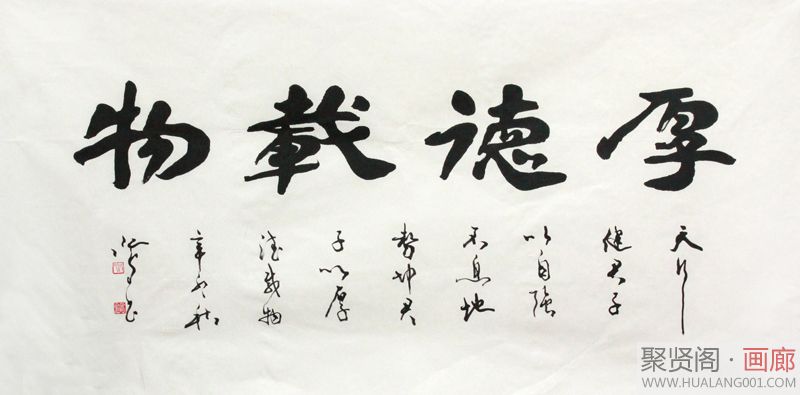 厚德載物
天行
健君子
以自強
不息地
勢坤君
子以厚
德載物
辛卯秋
聚贤阁·画廊
WWW.HUALANG001.COM